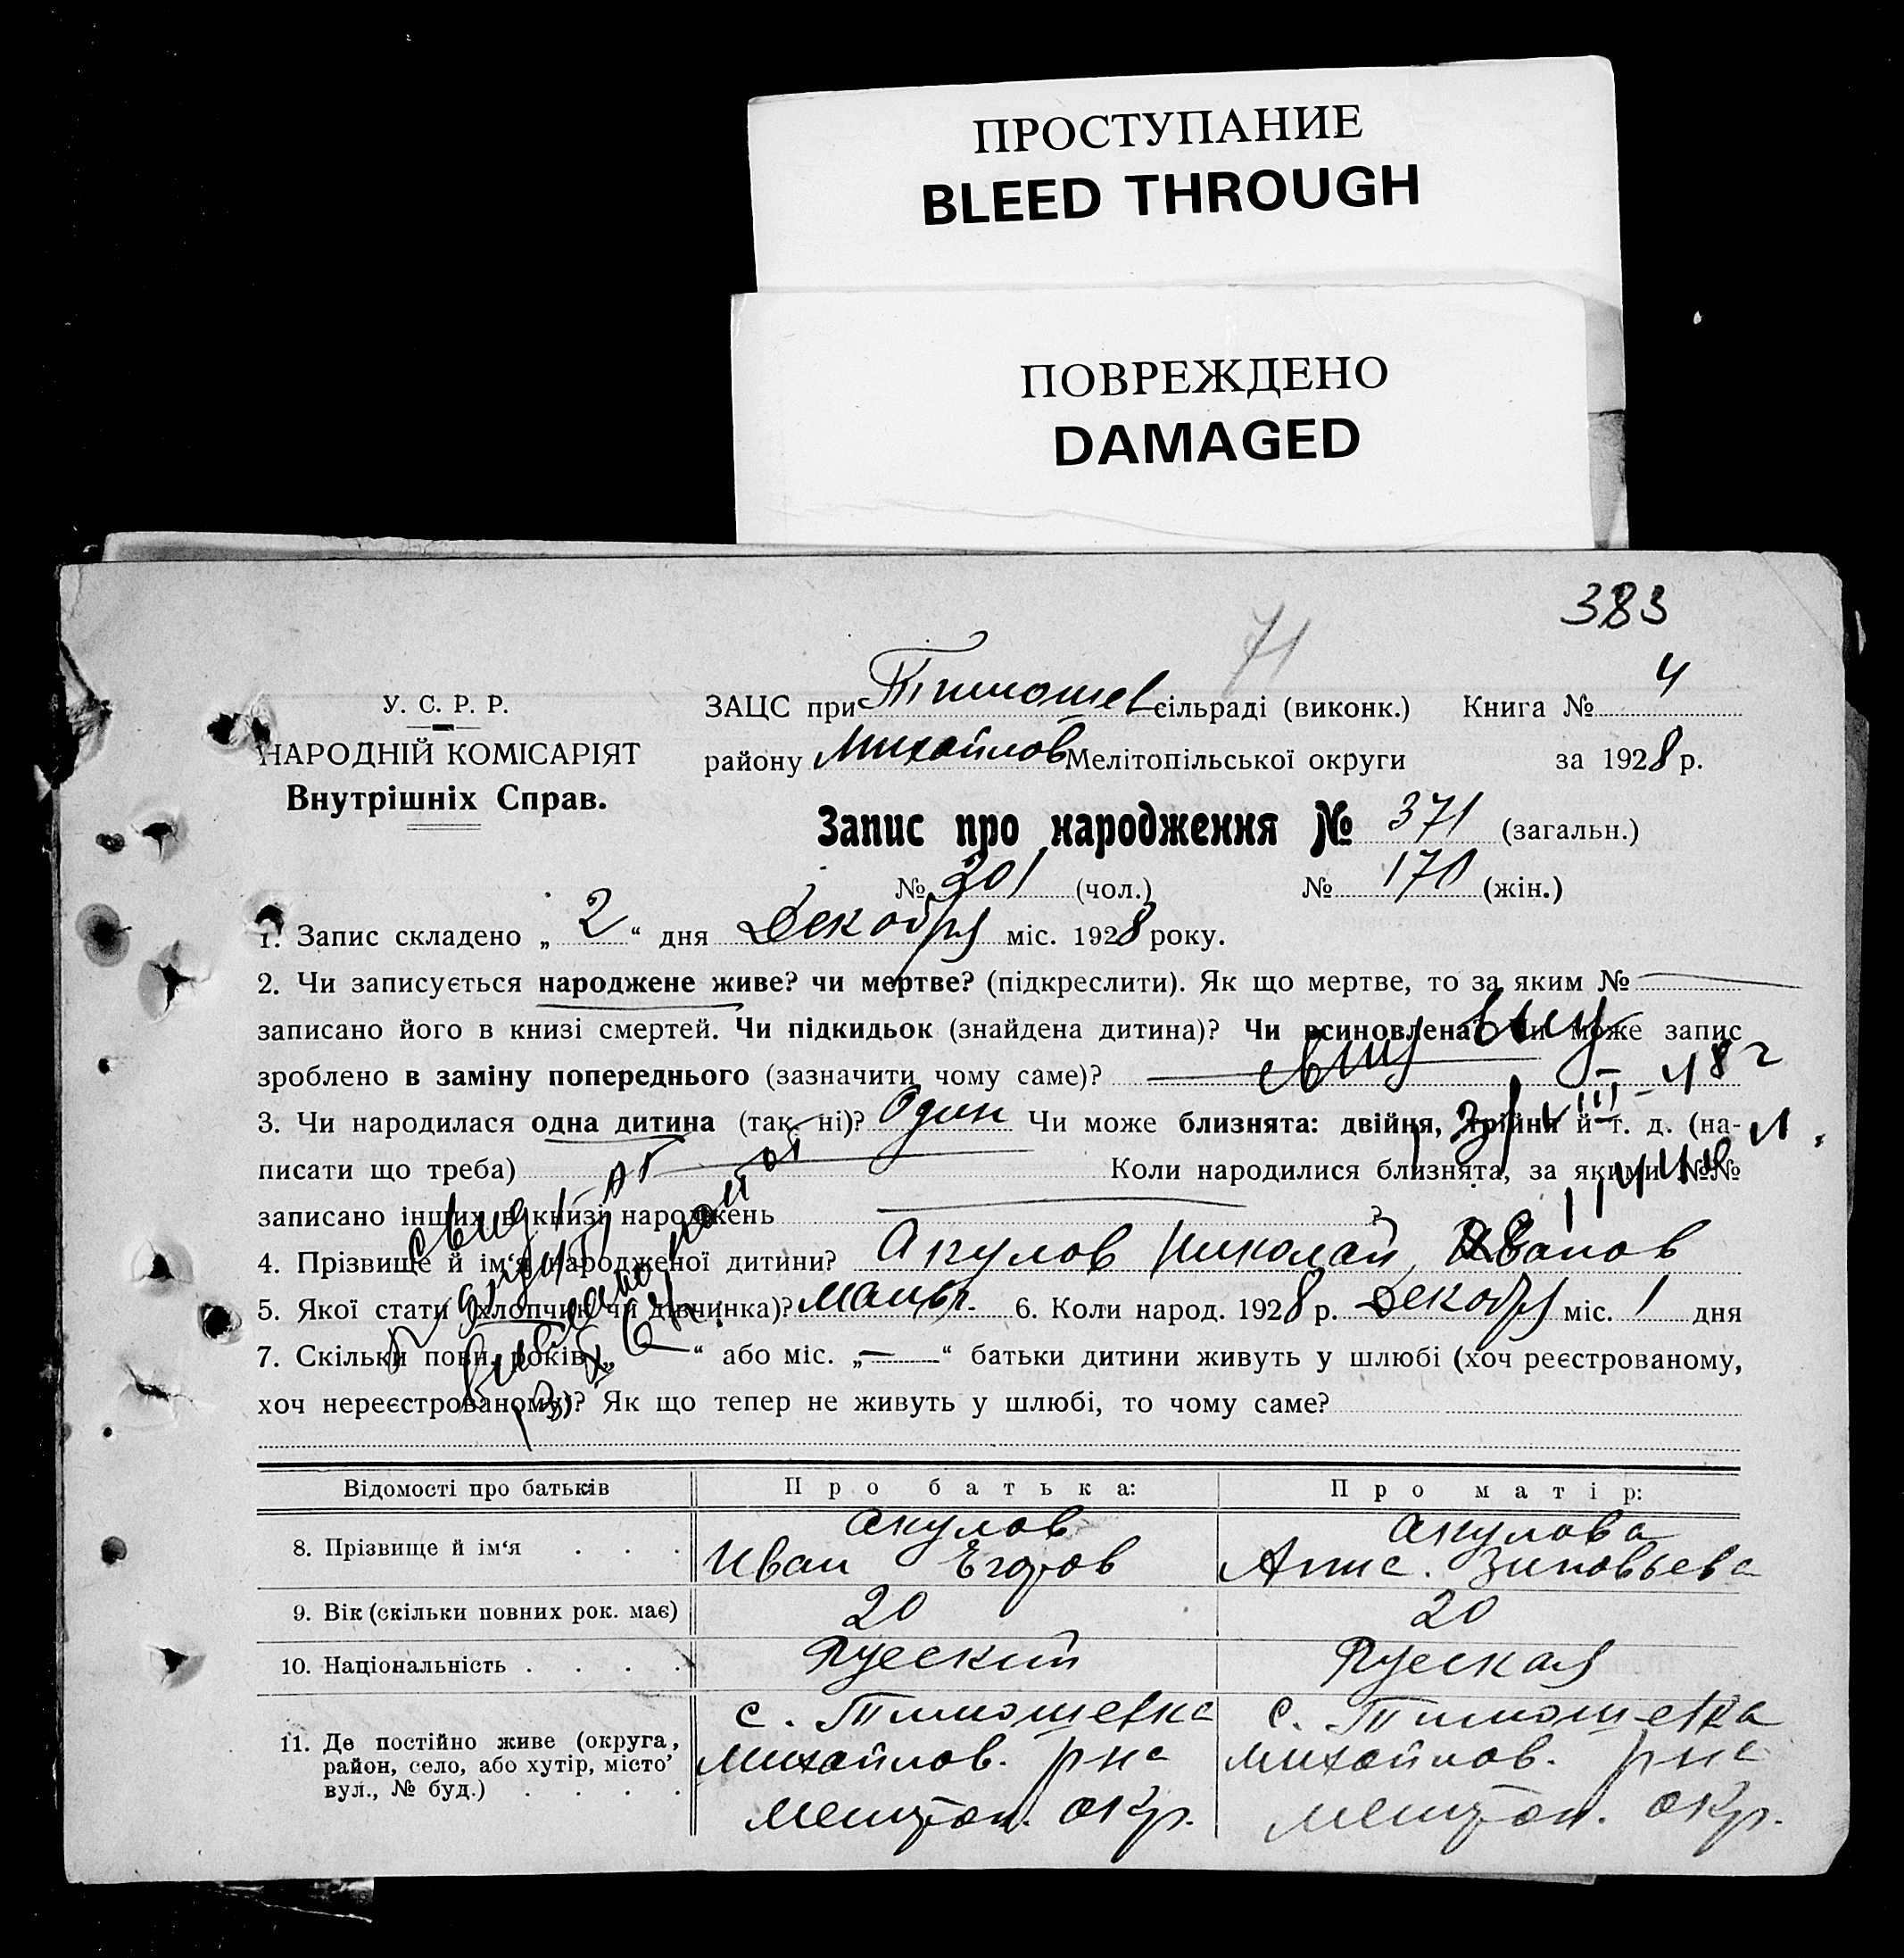 ПРОСТУПАНИЕ
BLEED THROUGH
ПОВРЕЖДЕНО
DAMAGED
383
71
У. С. Р. Р.
НАРОДНІЙ КОМІСАРІЯТ
Внутрішніх Справ.
ЗАЦС при Тимошев сільраді (виконк.) Книга № 4
району Михайлов Мелітопільської округи за 1928 р.
Запис про народження № 371 (загальн.)
№ 201 (чол.) № 170 (жін.)
1. Запис складено „ 2 “ дня Декабря міс. 1928 року.
2. Чи записується народжене живе? чи мертве? (підкреслити). Як що мертве, то за яким №
записано його в книзі смертей. Чи підкидьок (знайдена дитина)? Чи всиновлена? Чи може запис
зроблено в заміну попереднього (зазначити чому саме)?
3. Чи народилася одна дитина (так, ні)? Один Чи може близнята: двійня, трійня й т. д. (на-
писати що треба) Коли народилися близнята, за якими №№
записано інших в книзі народжень ?
4. Прізвище й ім‘я народженої дитини? Акулов Николай Иванов
5. Якої стати (хлопчик чи дівчинка)? Мальч. 6. Коли народ. 1928 р. Декабря міс. 1 дня
7. Скільки повн. років „ — “ або міс. „ — “ батьки дитини живуть у шлюбі (хоч реєстрованому,
хоч нереєстрованому)? Як що тепер не живуть у шлюбі, то чому саме?
Відомості про батьків Про батька: Про матір:
8. Прізвище й ім‘я . . . Акулов Иван Егоров Акулова Анна. Зиновьева
9. Вік (скільки повних рок. має) 20 20
10. Національність . . . . Русский Русская
11. Де постійно живе (округа, район, село, або хутір, місто вул., № буд.) . . . .
с. Тимошевка с. Тимошевка
Михайлов. рна Михайлов. рна
Мелитоп. окр. Мелитоп. окр.